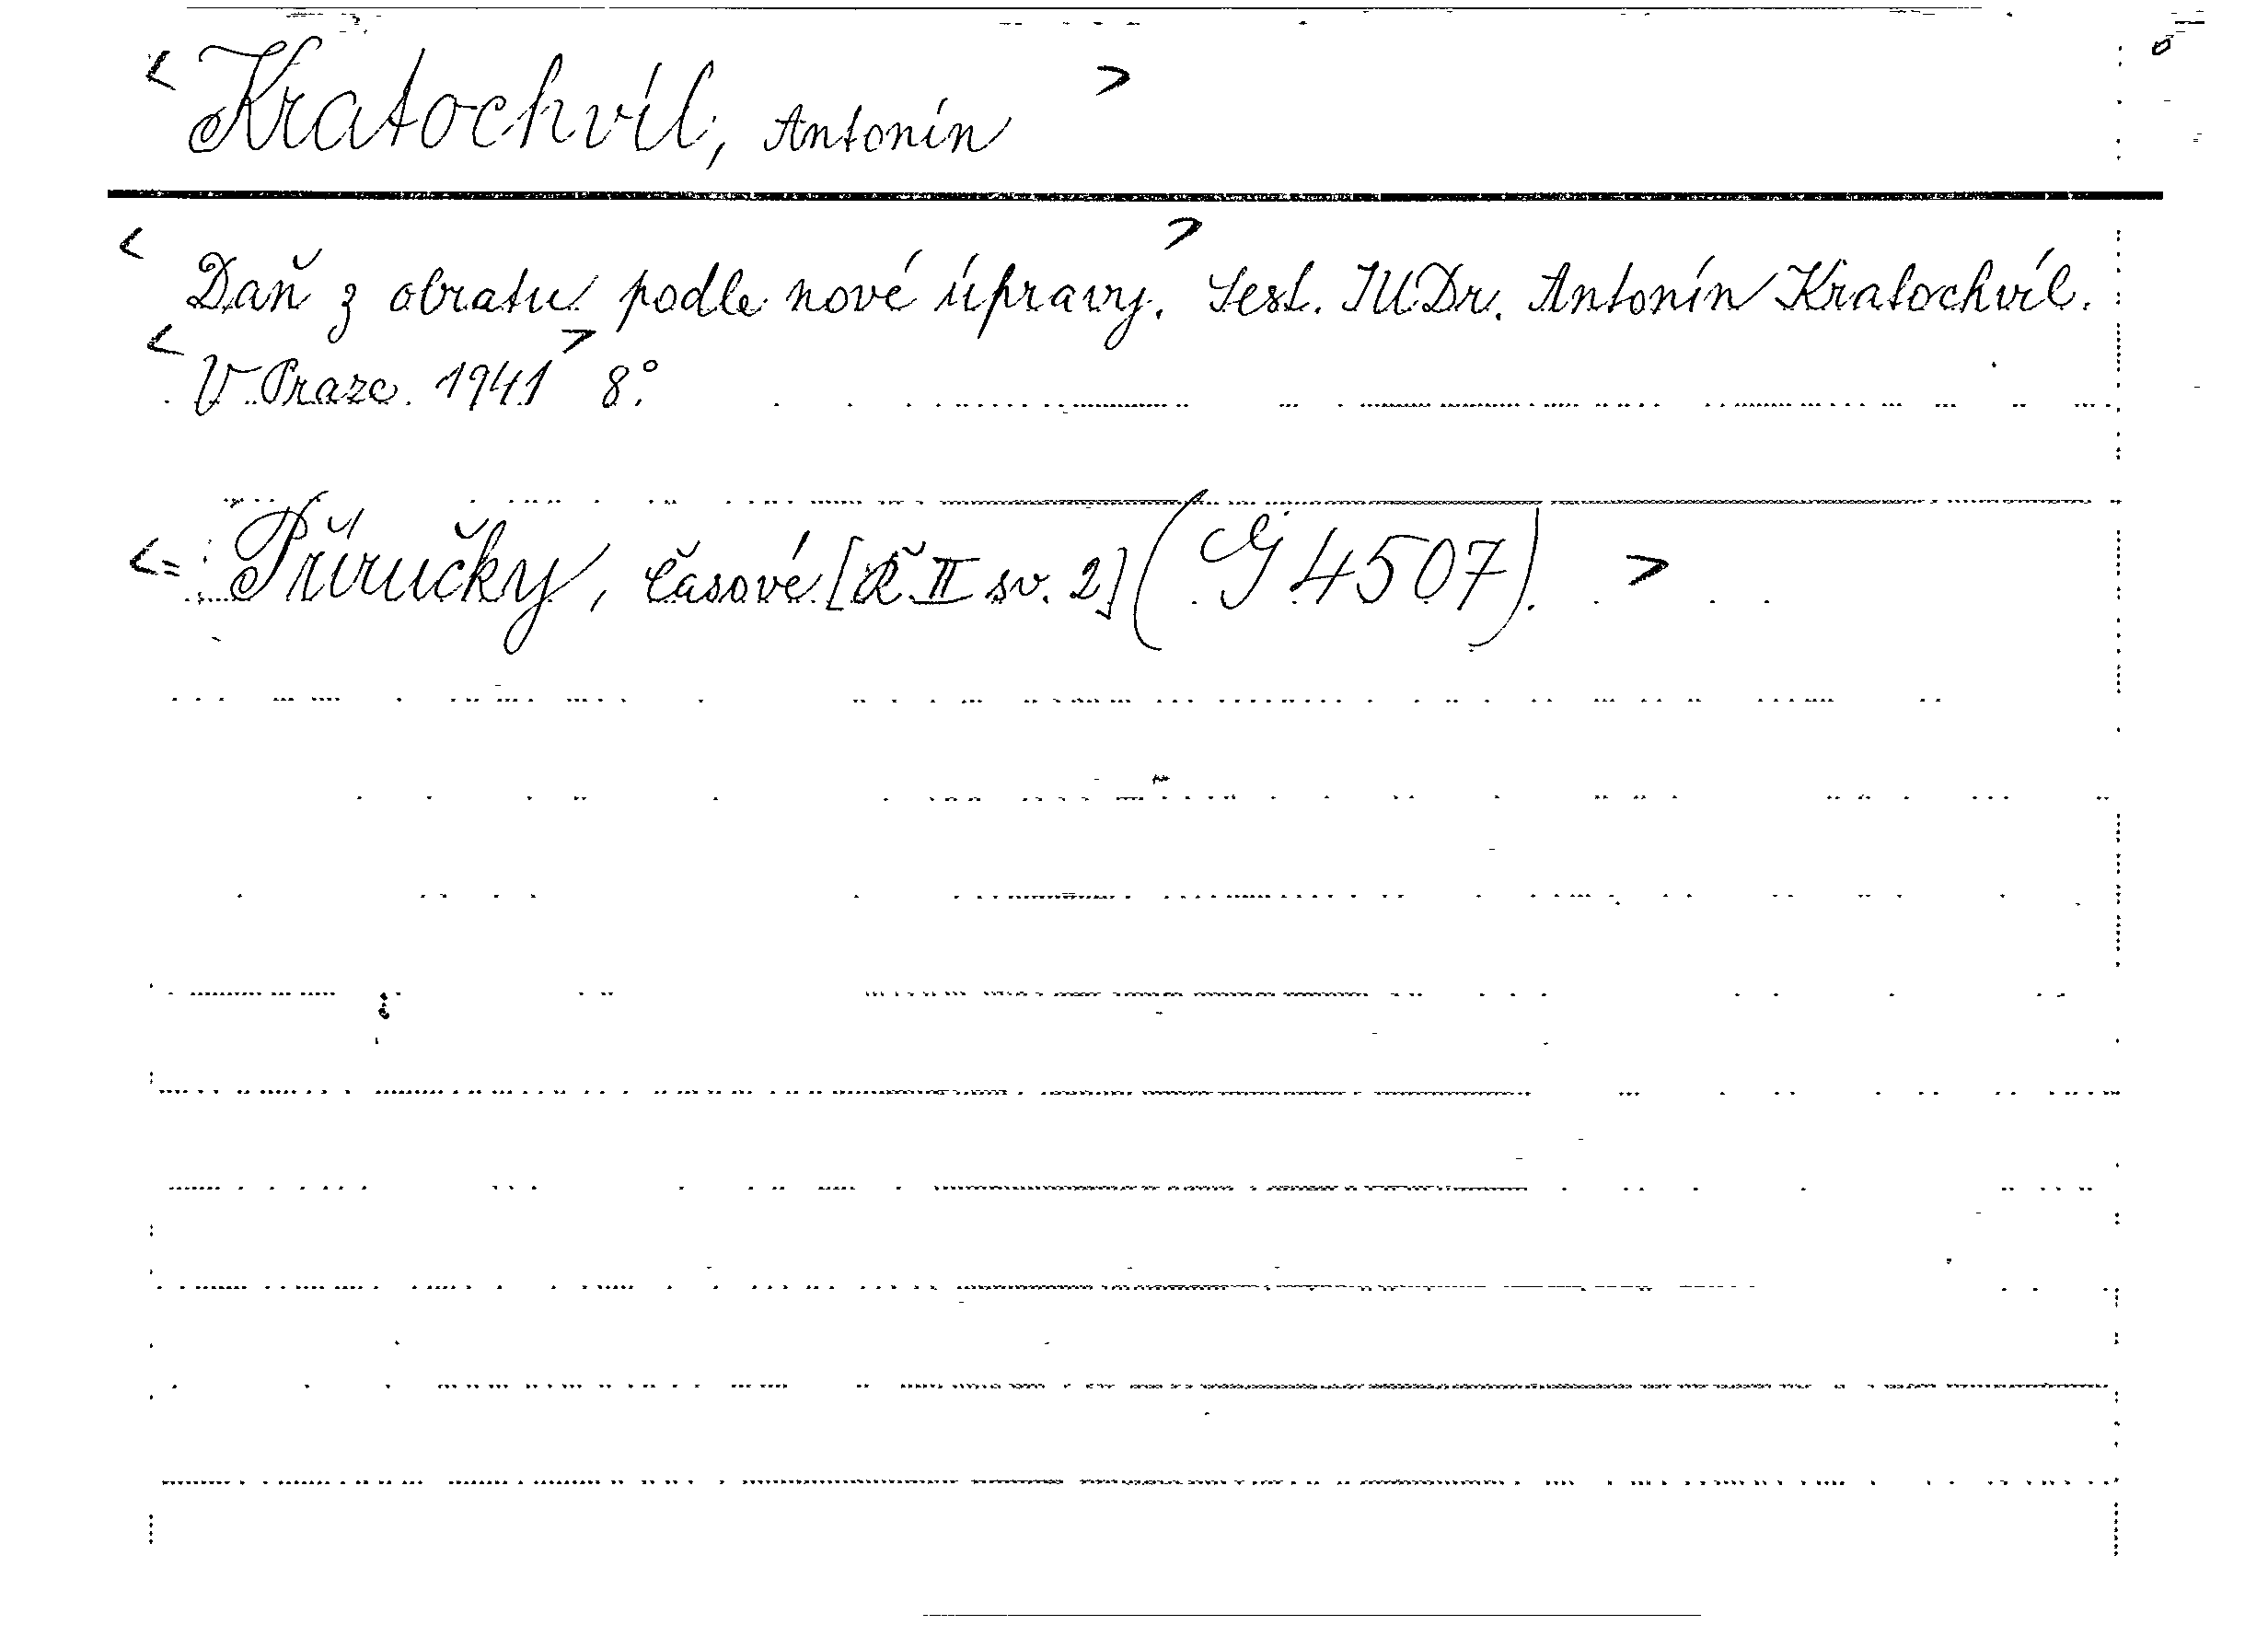 < Kratochvíl, Antonín >
< Daň z obratu podle nové úpravy. > Sest. JUDr. Antonín Kratochvíl.
< V Praze. 1941 > 8°.
<= Příručky, časové [Ř II sv. 2] (G 4507). >